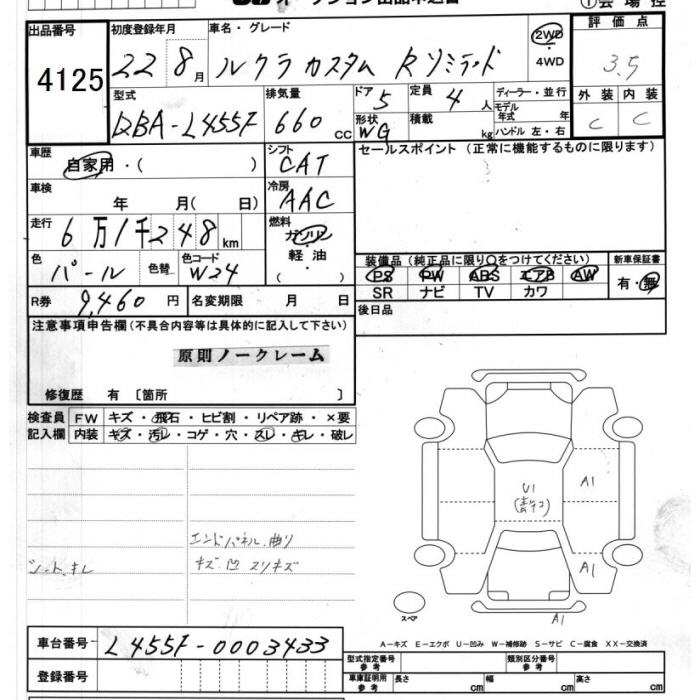 オークション出品申込書
①会場控
出品番号
4125
初度登録年月
22 8月
車名・グレード
ルクラ カスタム Rリミテッド
2WD
4WD
評価点
3.5
型式
DBA-L455F
排気量
660 cc
ドア
5
形状
WG
定員
4人
積載
kg
ディーラー・並行
モデル年式 年
ハンドル 左・右
外装 内装
C C
車歴
自家用・( )
シフト
CAT
セールスポイント (正常に機能するものに限ります)
車検
年 月( 日)
冷房
AAC
走行
6万1千248km
燃料
ガソリン
・
軽油
( )
色
パール
色替
色コード
W24
装備品 (純正品に限り○をつけてください)
PS PW ABS エアB AW
SR ナビ TV カワ
新車保証書
有・無
R券 9,460円
名変期限 月 日
後日品
注意事項申告欄(不具合内容等は具体的に記入して下さい)
原則ノークレーム
修復歴 有〔箇所 〕
検査員 FW キズ・飛石・ヒビ割・リペア跡・×要
記入欄 内装 キズ・汚レ・コゲ・穴・スレ・キレ・破レ
シート、キレ
エンドパネル、曲り
キズ、凹 スリキズ
U1
A1
A1
A1
スペア
A-キズ E-エクボ U-凹み W-補修跡 S-サビ C-腐食 XX-交換済
車台番号 L455F-0003433
登録番号
型式指定番号
参考
類別区分番号
参考
車庫証明用
参考
長さ cm 幅 cm 高さ cm